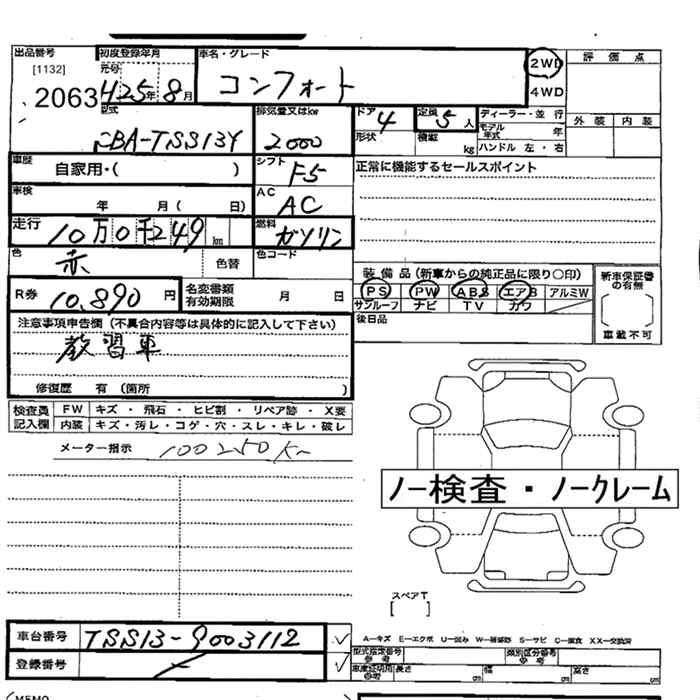 出品番号 初度登録年月 車名・グレード 評価点
[1132] 元号 2WD
2063 H25年 8月 コンフォート 4WD
型式 排気量又はkw ドア 4 定員 5人 ディーラー・並行 外装 内装
CBA-TSS13Y 2000 形状 積載 kg モデル年式 年
ハンドル 左・右
車歴 自家用・( ) シフト F5 正常に機能するセールスポイント
車検 年 月( 日) AC AC
走行 10万0千249km 燃料 ガソリン
色 赤 色替 色コード
装備品(新車からの純正品に限り○印) 新車保証書の有無
R券 10,890円 名変書類有効期限 月 日 PS PW ABS エアB アルミW
サンルーフ ナビ TV カワ
注意事項申告欄(不具合内容等は具体的に記入して下さい) 後日品 車載不可
教習車
修復歴 有(箇所 )
検査員記入欄 FW キズ・飛石・ヒビ割・リペア跡・X要
内装 キズ・汚レ・コゲ・穴・スレ・キレ・破レ
メーター指示 100250K
ノー検査・ノークレーム
スペアT
[ ]
車台番号 TSS13-9003112 A-キズ E-エクボ
登録番号 型式指定番号 類別区分番号
参考 参考
長さ 幅 高さ
MEMO